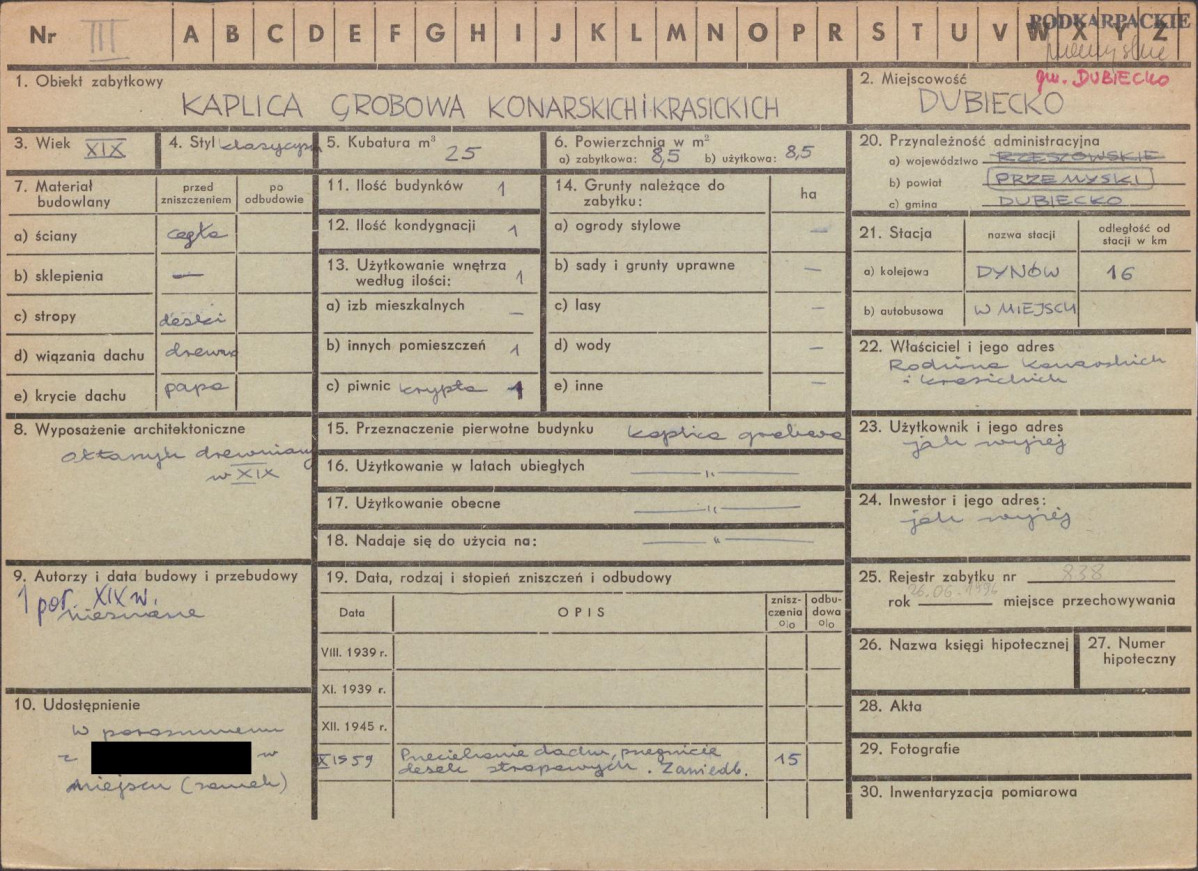 Nr III A B C D E F G H I J K L M N O P R S T U V W X Y Z
PODKARPACKIE
przemyskie
gm. DUBIECKO
1. Obiekt zabytkowy
KAPLICA GROBOWA KONARSKICH i KRASICKICH
2. Miejscowość
DUBIECKO
3. Wiek XIX
4. Styl klasycyzm
5. Kubatura m³
25
6. Powierzchnia w m²
a) zabytkowa: 8,5 b) użytkowa: 8,5
7. Materiał budowlany
przed zniszczeniem
po odbudowie
a) ściany cegła
b) sklepienia —
c) stropy deski
d) wiązania dachu drewno
e) krycie dachu papa
11. Ilość budynków 1
12. Ilość kondygnacji 1
13. Użytkowanie wnętrza
według ilości: 1
a) izb mieszkalnych –
b) innych pomieszczeń 1
c) piwnic krypta 1
14. Grunty należące do
zabytku:
ha
a) ogrody stylowe –
b) sady i grunty uprawne –
c) lasy –
d) wody –
e) inne –
20. Przynależność administracyjna
a) województwo RZESZOWSKIE
b) powiat PRZEMYSKI
c) gmina DUBIECKO
21. Stacja
nazwa stacji
odległość od
stacji w km
a) kolejowa DYNÓW 16
b) autobusowa W MIEJSCU
22. Właściciel i jego adres
Rodzina Konarskich
i Krasickich
8. Wyposażenie architektoniczne
ołtarzyk drewniany
w XIX
15. Przeznaczenie pierwotne budynku kaplica grobowa
16. Użytkowanie w latach ubiegłych —"—
17. Użytkowanie obecne —"—
18. Nadaje się do użycia na: —"—
23. Użytkownik i jego adres
jak wyżej
24. Inwestor i jego adres:
jak wyżej
9. Autorzy i data budowy i przebudowy
1 poł. XIX w.
nieznane
19. Data, rodzaj i stopień zniszczeń i odbudowy
Data
OPIS
znisz-
czenia
%
odbu-
dowa
%
VIII. 1939 r.
XI. 1939 r.
XII. 1945 r.
X 1959 Przeciekanie dachu, przegnicie
desek stropowych. Zaniedb. 15
25. Rejestr zabytku nr 838
26.06.1996
rok miejsce przechowywania
26. Nazwa księgi hipotecznej
27. Numer
hipoteczny
10. Udostępnienie
W porozumieniu
z w
miejscu (zamek)
28. Akta
29. Fotografie
30. Inwentaryzacja pomiarowa